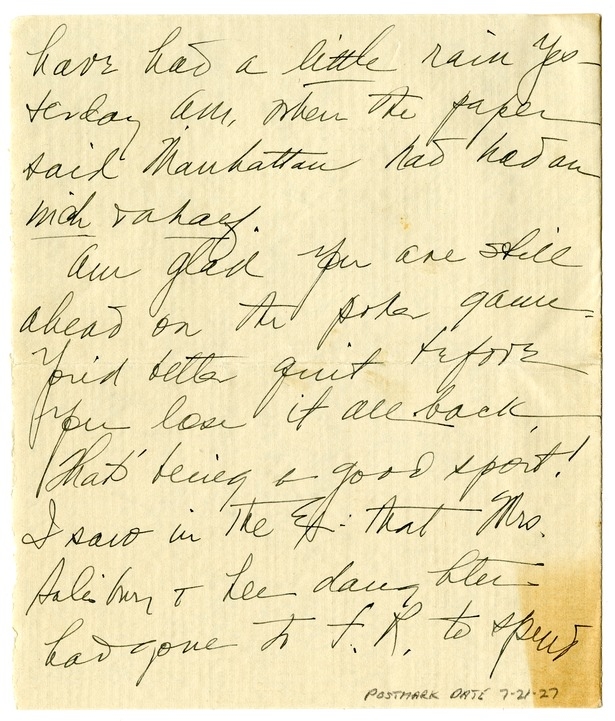 have had a little rain Yes-
terday am, when the paper
said Manhattan had had an
inch & a half.
Am glad you are still
ahead on the poker game.
You'd better quit before
you lose it all back
That's being a good sport!
I saw in The Ex. that Mrs.
Salisbury & her daughter
had gone to F. R. to spend
POSTMARK DATE 7-21-27